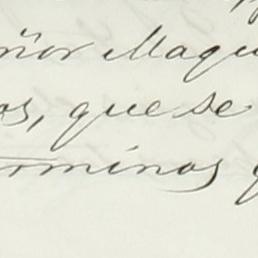 ñor Maqu
os, que se
terminos